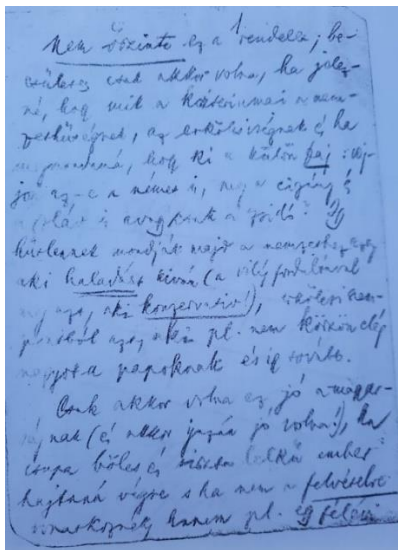 Nem őszinte ez a rendelet; be-
csületes csak akkor volna, ha jelez-
né, hogy mik a kritériumai a nem-
zethűségnek, az erkölcsiségnek és ha
megmondaná, hogy ki a külön faj: vaj-
jon az-e a német is, meg a cigány és
a is avagy csak a zsidó? Így
hűtlennek mondják majd a nemzethez azt,
aki haladást kíván (a világ fordultával
meg azt, aki konzervatív!), erkölcsi szem-
pontból azt, aki pl. nem köszön elég
nagyot a papoknak és így tovább.
Csak akkor volna ez jó a magyar-
ságnak (és akkor igazán jó volna!), ha
csupa bölcs és tiszta lelkű ember
hajtaná végre s ha nem a felvételre
vonatkoznék, hanem pl. egy félévi